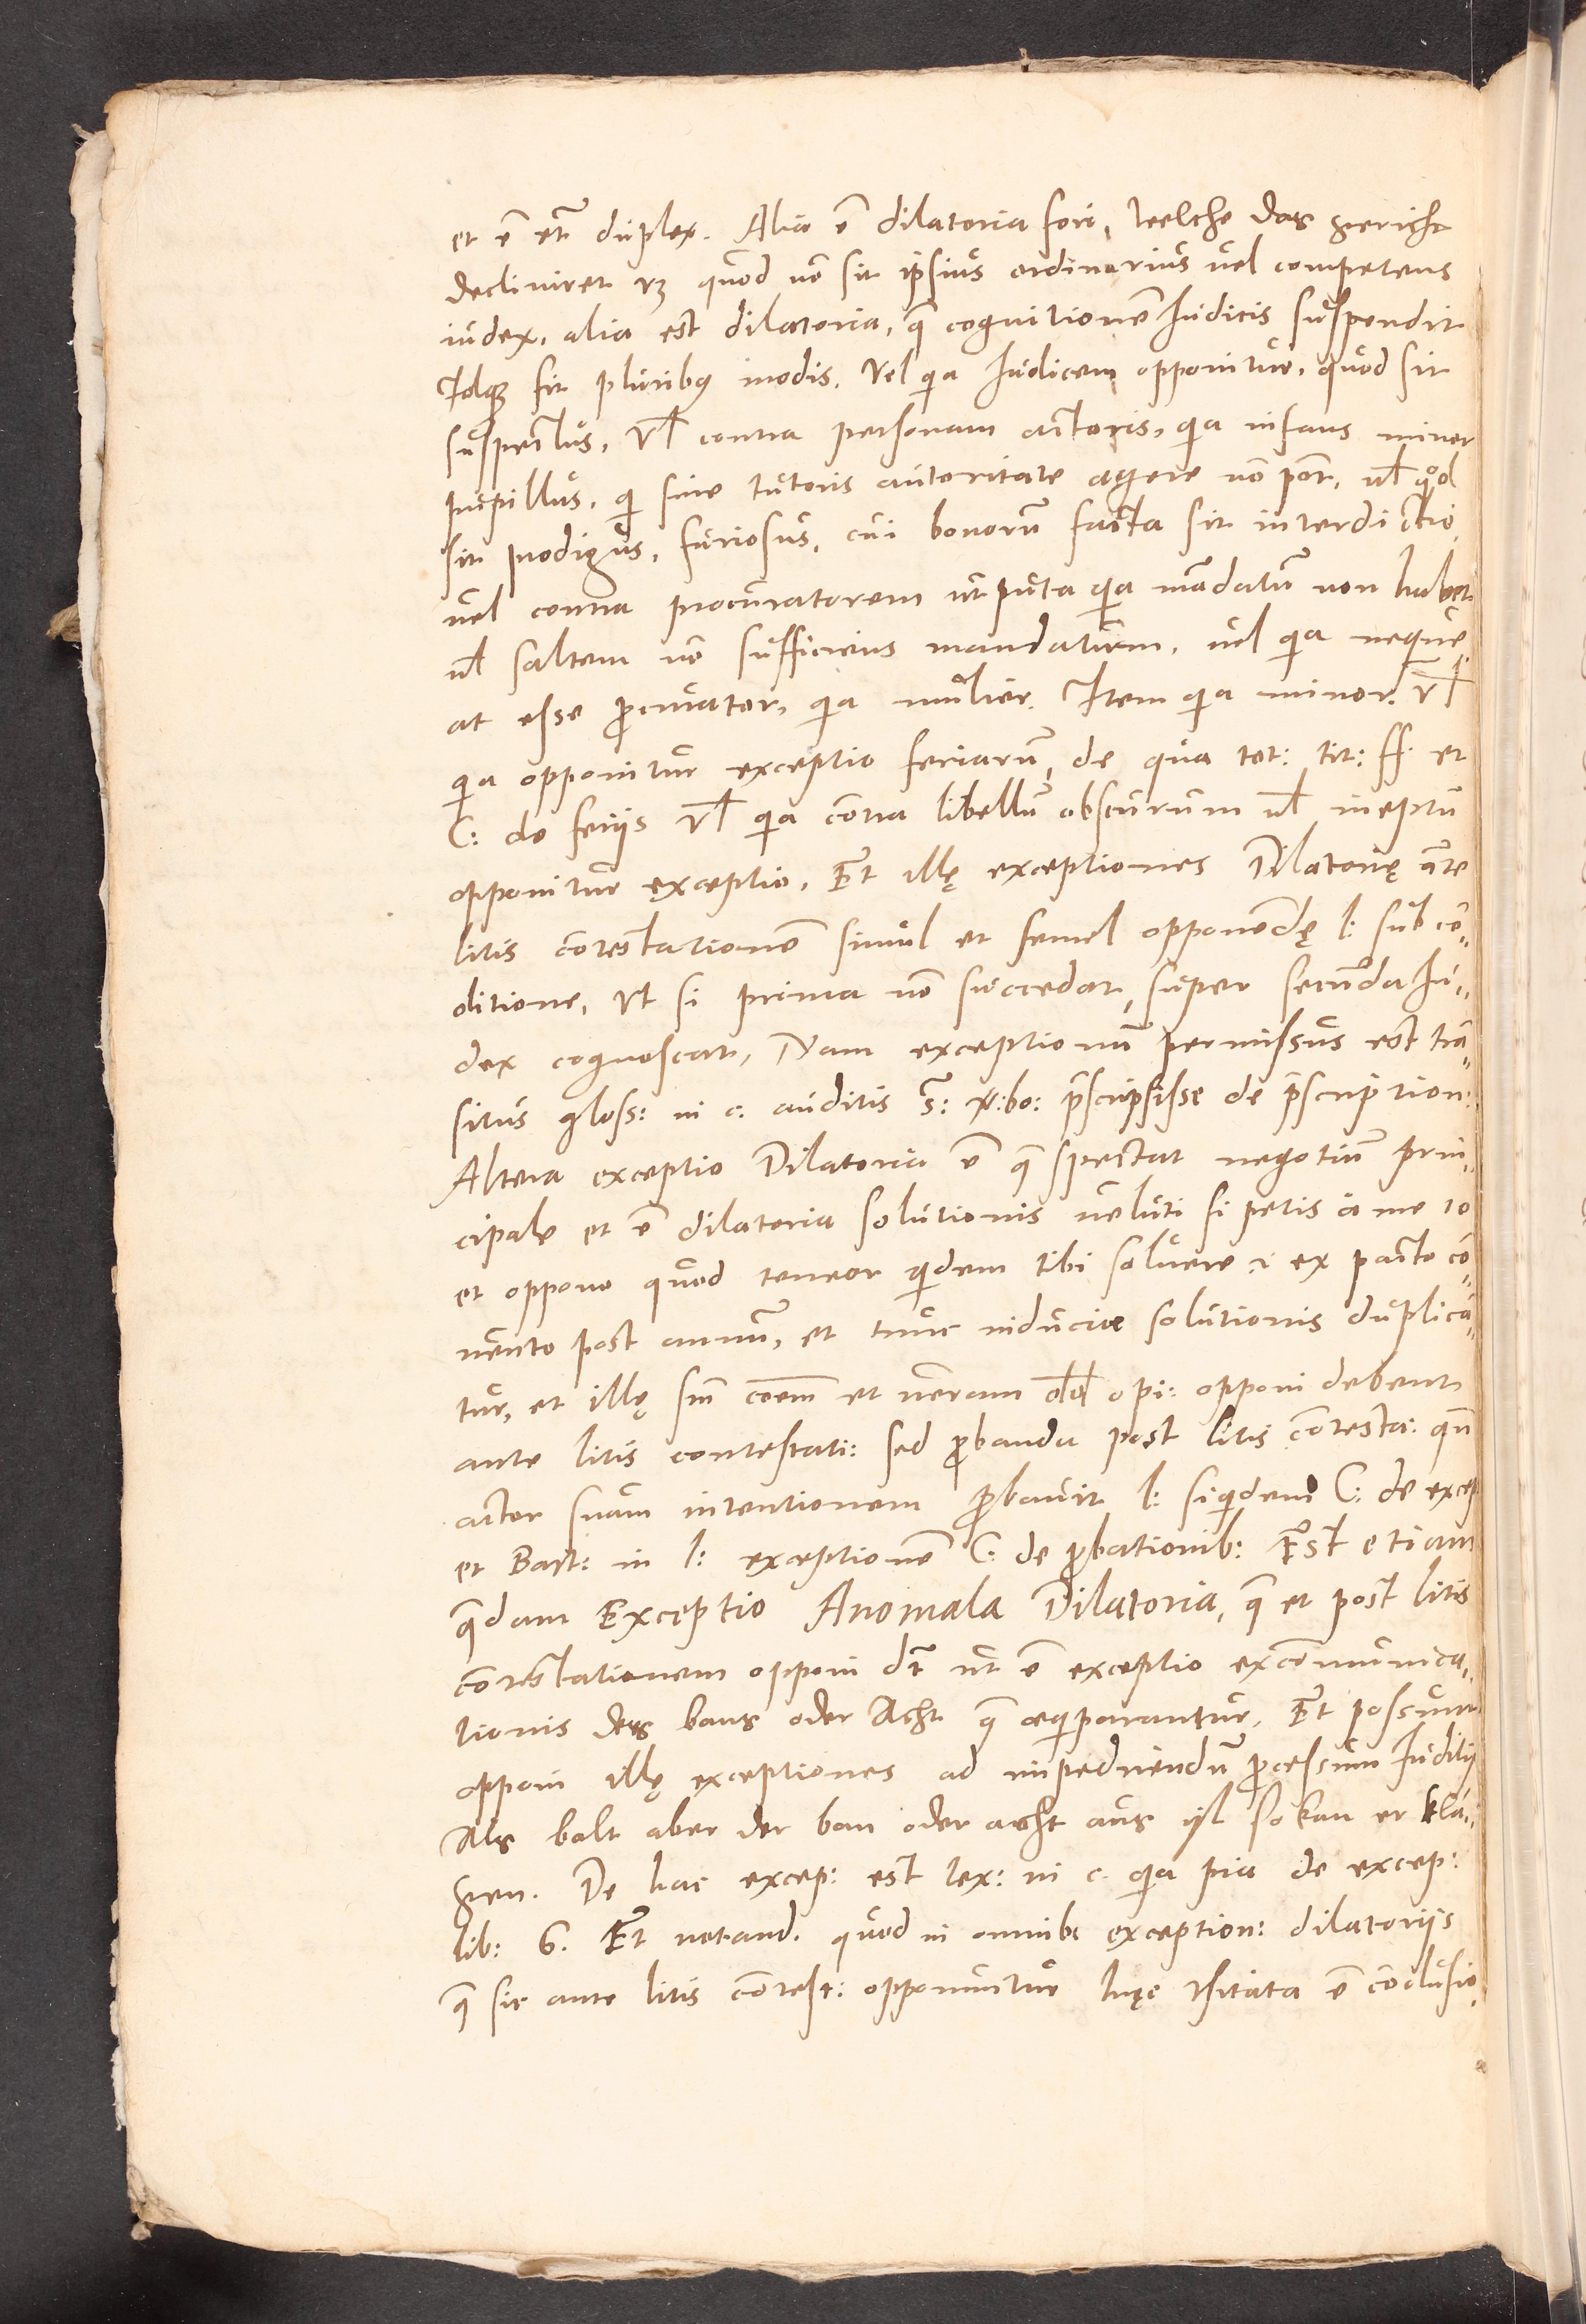 et ē etā duplex. Alia ē dilatoria fori, welche das gericht
decliniret vz quod nō sit ipsius ordinarius vel competens
iudex, alia est dilatoria, q̄ cognitionē Iudicis suspendit
Idq3 fit pluribq modis. Vel qia Iudicem opponitur, quod sit
suspectus, Vl contra personam actoris, qia infans minor
pupillus, qi sine tutoris autoritate agere nō pōt, vl qod
sit prodigus, furiosus, cui bonorū facta sit interdictio,
vel contra procuratorem utputa qia mādatū non habet
vl saltem nō sufficiens mandatum, vel qia neque-
at esse procurator, qia mulier. Item qia minor. Vl
qia opponitur exceptio feriarū, de qua tot: tit: ff. et
C: de ferijs Vl qia cōtra libellū obscurum vl ineptū
opponitur exceptio. Et illę exceptiones Dilatorię āte
litis cōtestationē simul et semel opponēdę l: sub cō-
ditione, Vt si prima nō succedat, super secūda Iu-
dex cognoscat, Nam exceptionū permissus est trā-
situs gloss: in c. auditis prēscripsisse de prēscription:
Altera exceptio Dilatoria ē q̄ spectat negotiū prin-
cipale et ē dilatoria solutionis veluti si petis à me 10
et oppono quod teneor qidem tibi soluere ex pacto cō-
uento post annū, et tunc induciae solutionis duplicā-
tur, et illę sm̄ cōem et veram opi: opponi debent
ante litis contestati: sed probanda post litis cōtesta: qn̄
actor suam intentionem probauit l: siqidem C: de excep
et Bart: in l: exceptionē C: de probationib: Est etiam
q̄dam Exceptio Anomala Dilatoria, q̄ et post litis
cōtestationem opponi dt̄ ut ē exceptio excōmunica-
tionis des bans oder Acht q̄ aeqiparantur. Et possunt
opponi illę exceptiones ad impediendū processum Iuditij
Als balt aber der ban oder acht aus ist so kan er kla-
gen. De hac excep: est tex: in c. qia pia de excep:
lib: 6. Et notand. quod in omnib exception: dilatorijs
q̄ sic ante litis cōtest: opponuntur hęc vsitata ē cōclusio,